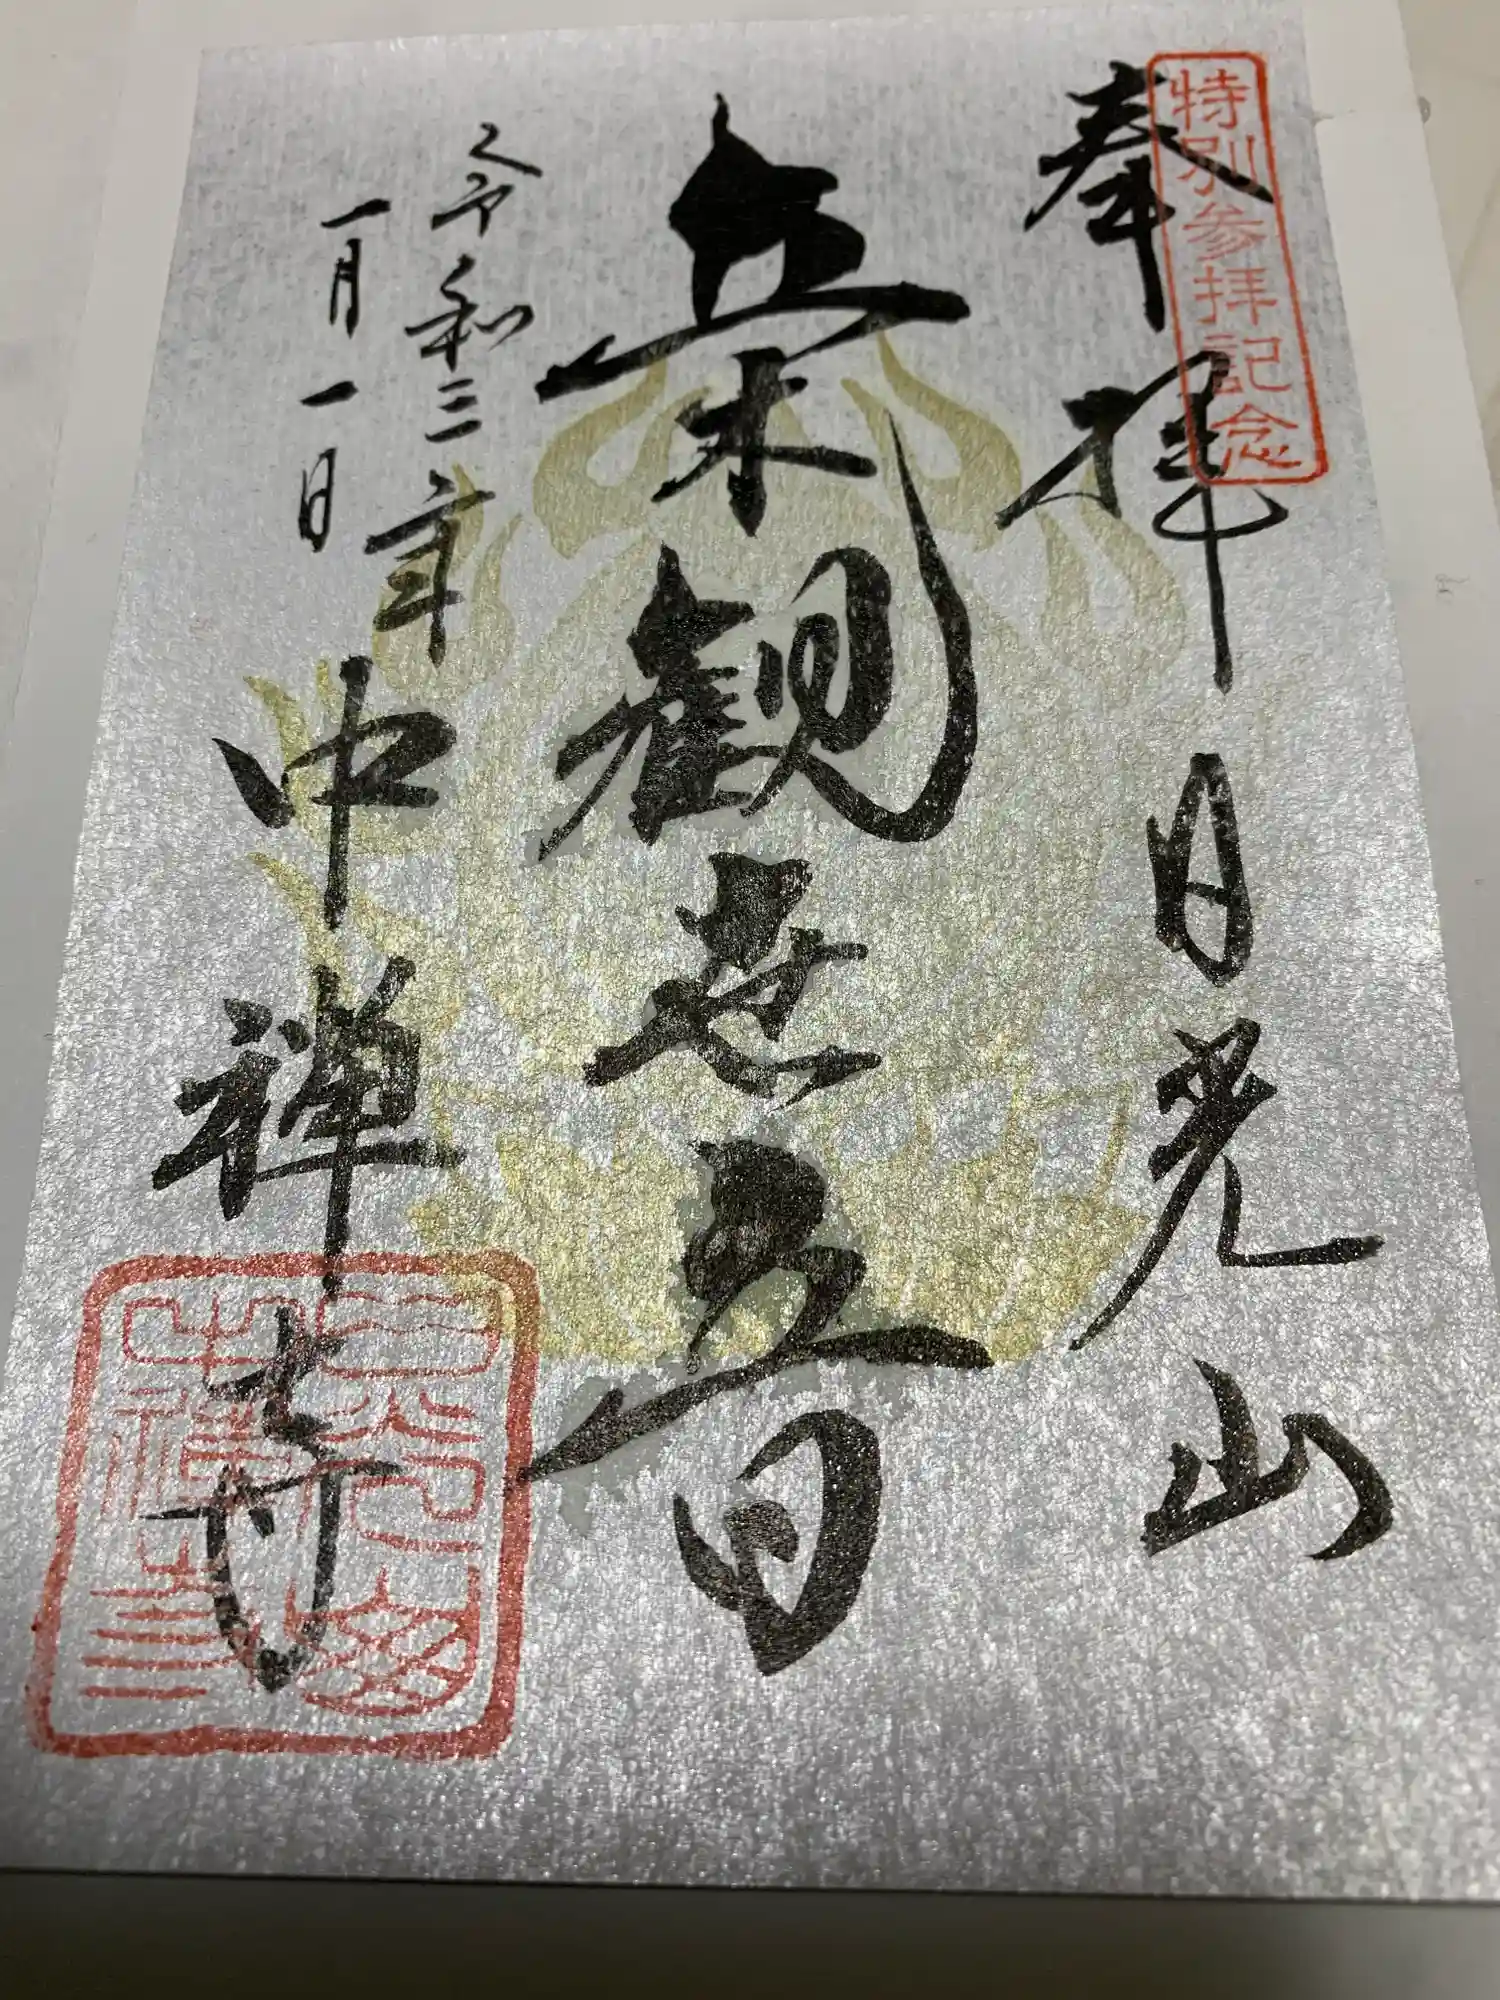 特別参拝記念
奉拝 日光山
立木観世音
令和三年
一月一日
中禅寺